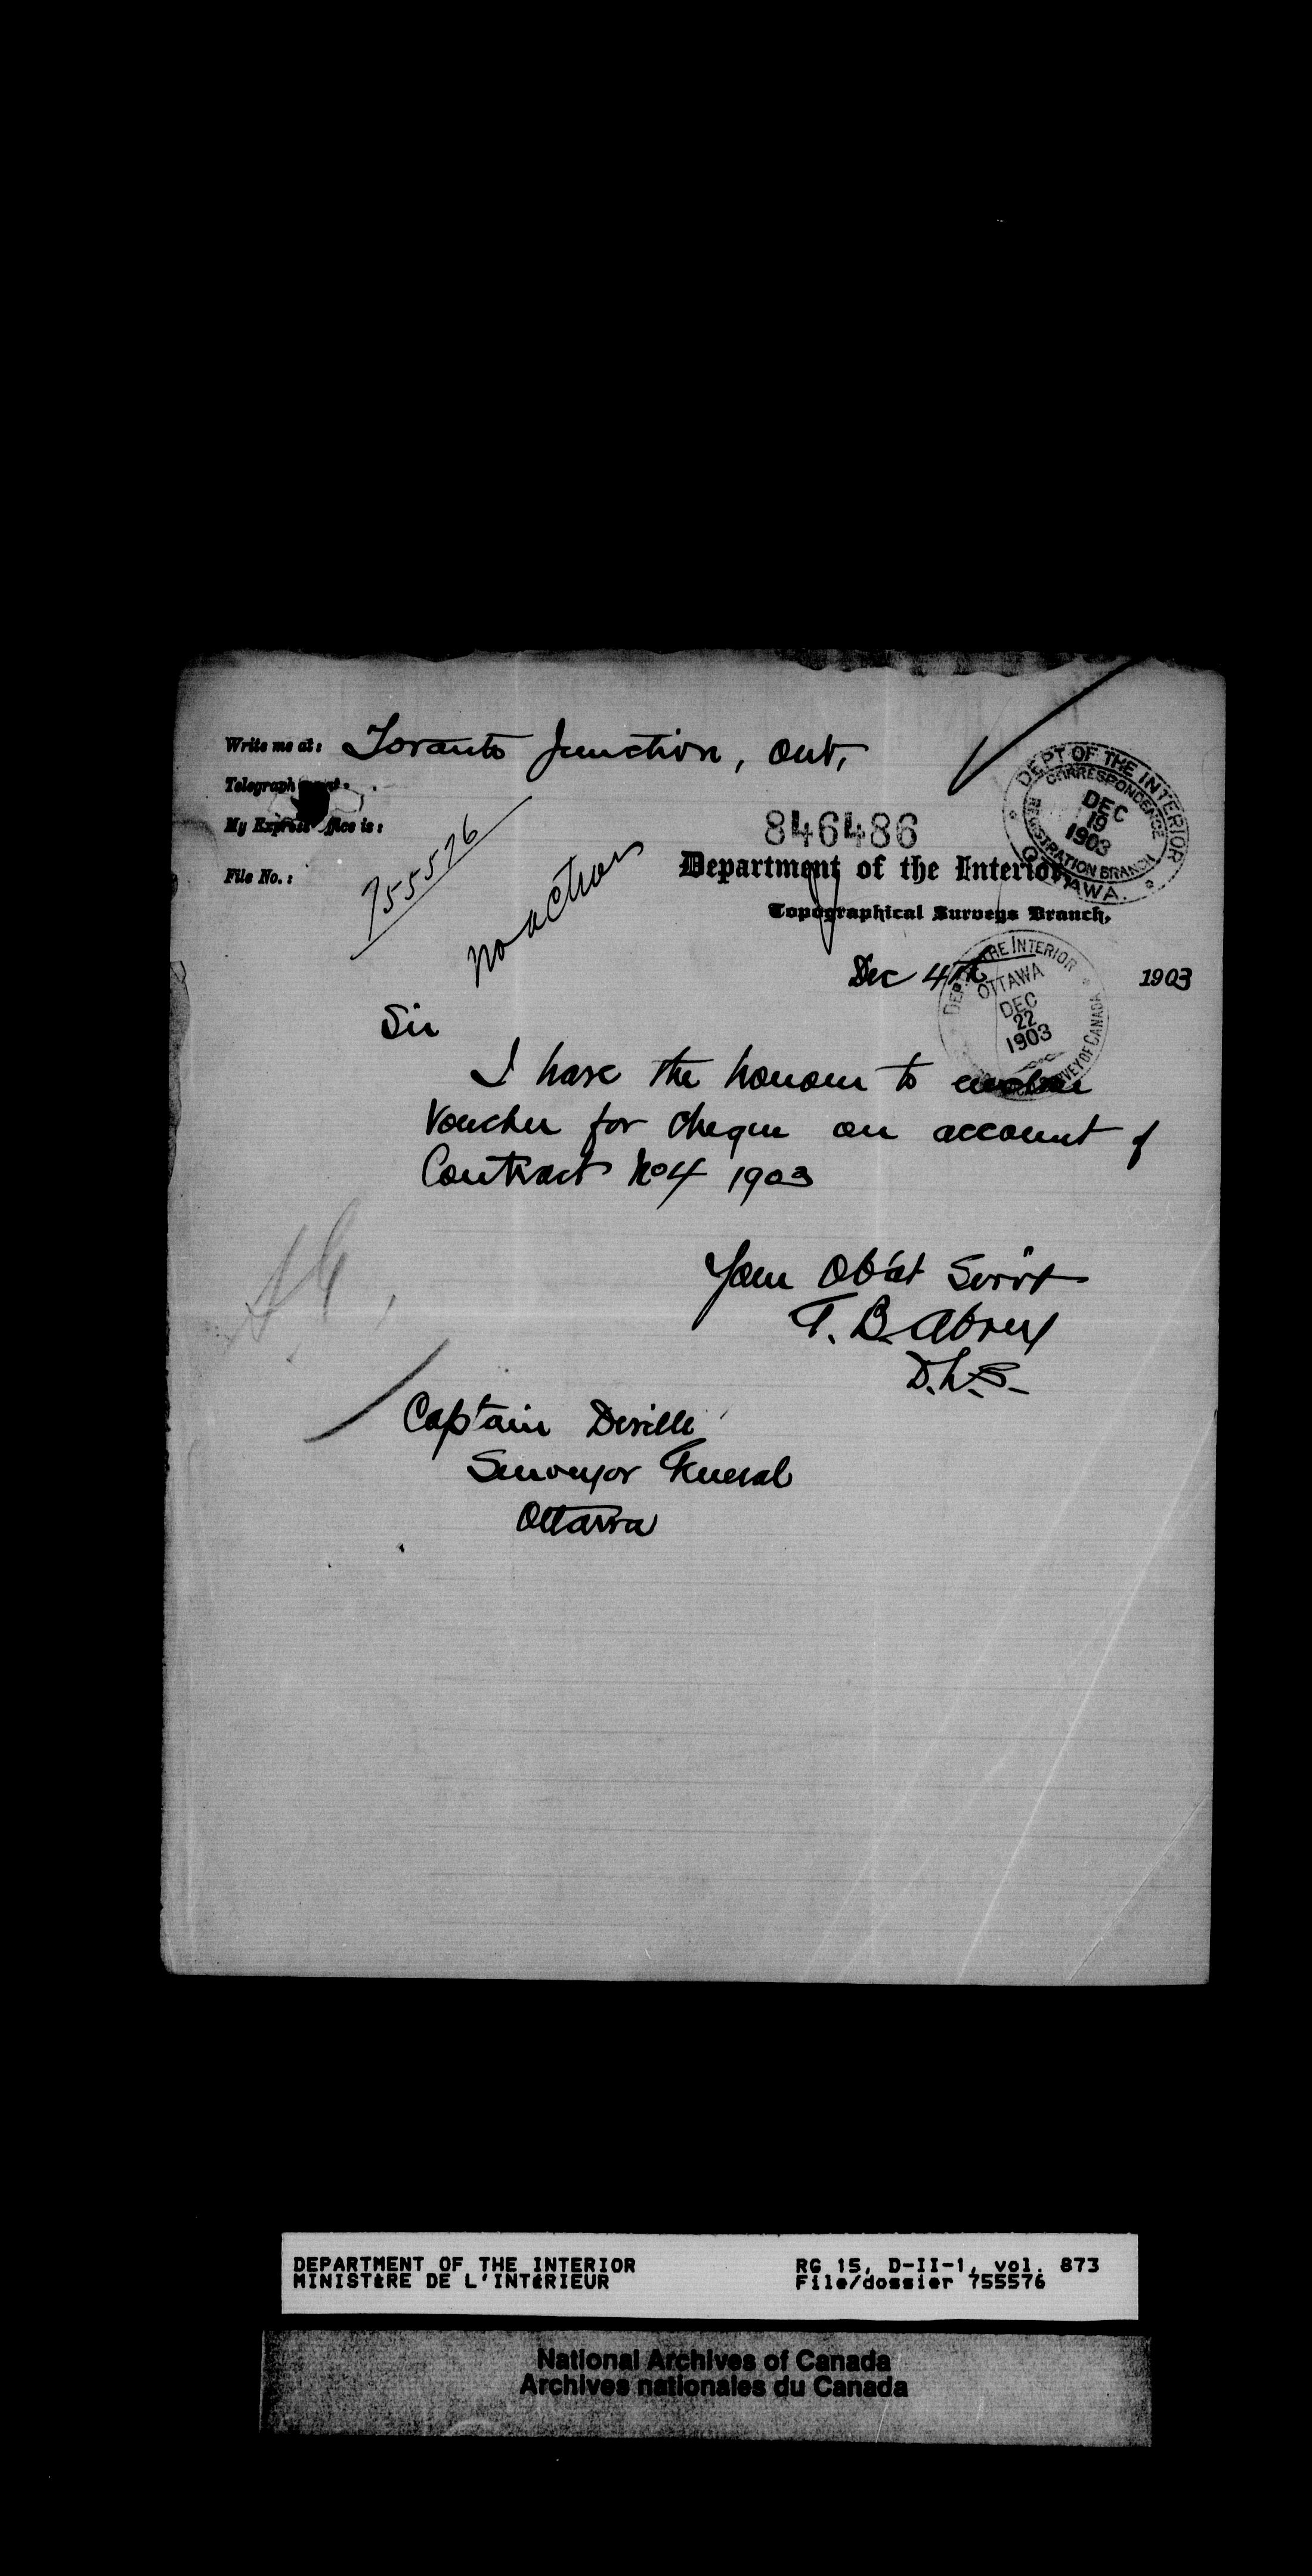 Write me at: Toronto Junction, Ont,
Telegraph
My Express Office is:
File No.:
755576
no action
846486
DEPT OF THE INTERIOR
CORRESPONDENCE
DEC
19
1903
REGISTRATION BRANCH
OTTAWA.
Department of the Interior,
Topographical Surveys Branch,
Dec 4th 1903
DEPT OF THE INTERIOR
OTTAWA
DEC
22
1903
SURVEY OF CANADA
Sir
I have the honour to enclose
Voucher for cheque on account of
Contract No 4 1903
Your Ob'dt Serv't
T. B. Abrey
D.L.S.
Captain Deville
Surveyor General
Ottawa
DEPARTMENT OF THE INTERIOR
MINISTÈRE DE L'INTÉRIEUR
RG 15, D-II-1, vol. 873
File/dossier 755576
National Archives of Canada
Archives nationales du Canada